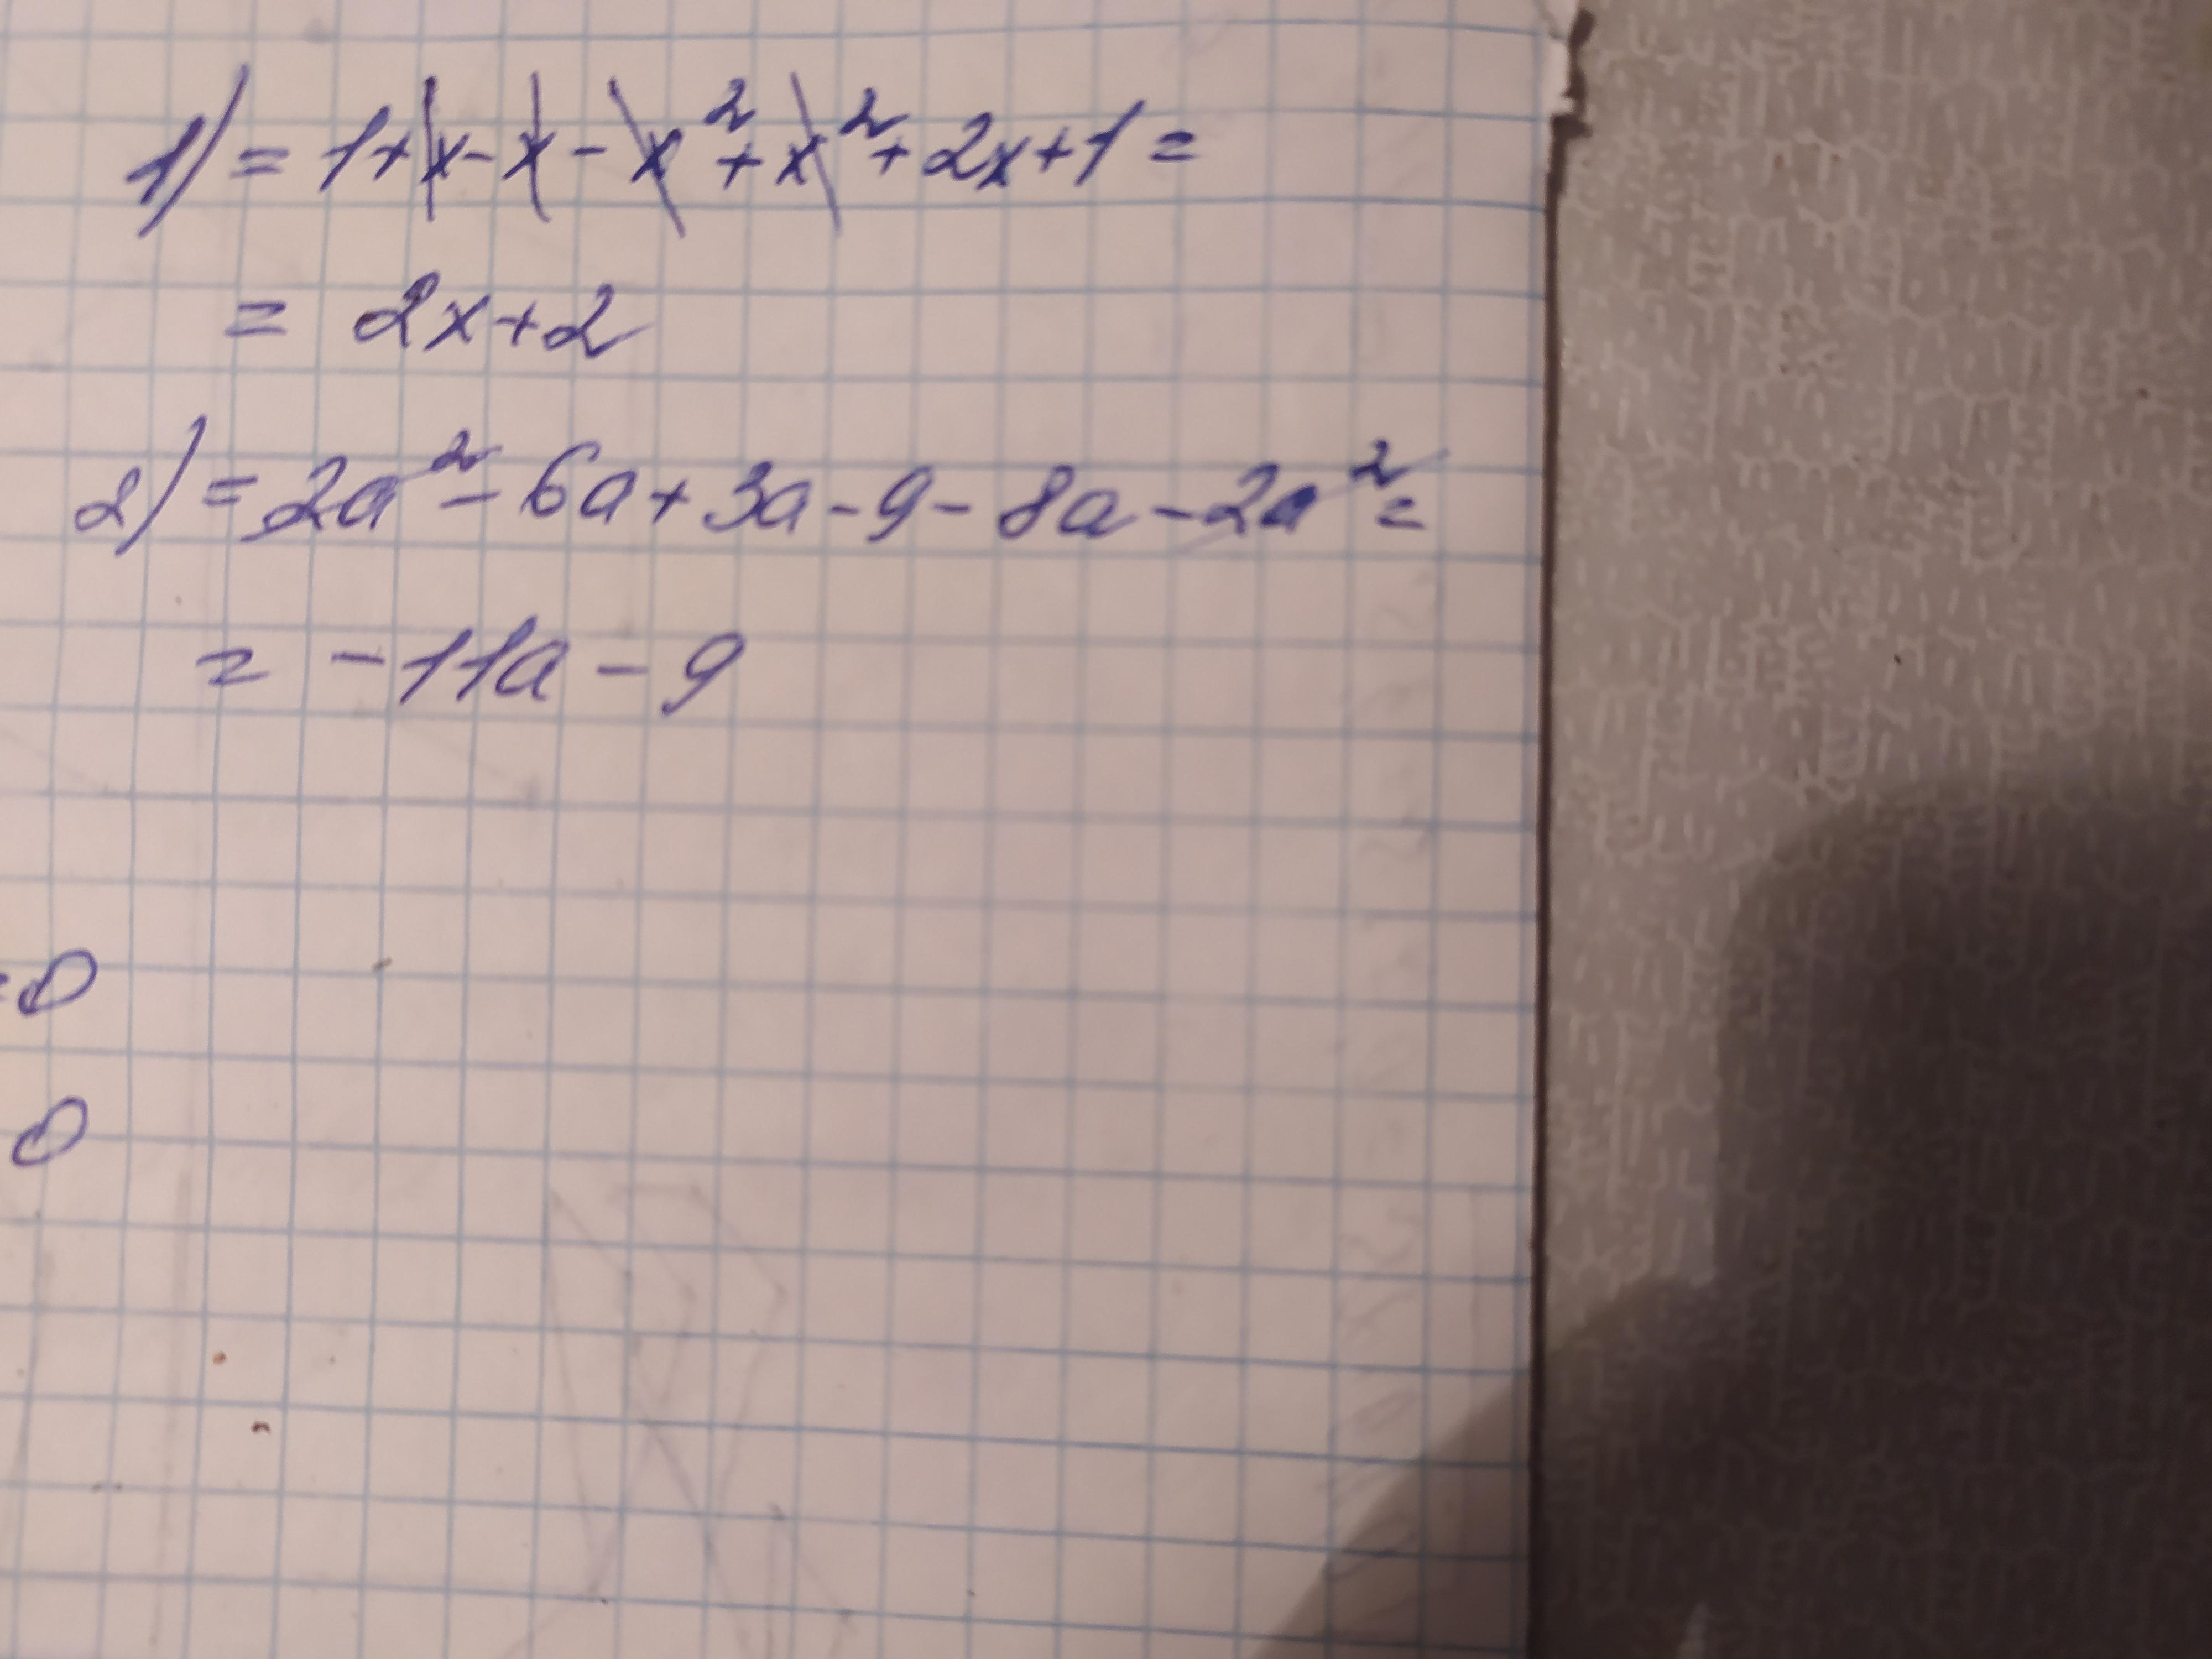 1) = 1+x-x-x²+x²+2x+1=
= 2x+2
2) = 2a²-6a+3a-9-8a-2a²=
= -11a-9
=0
0